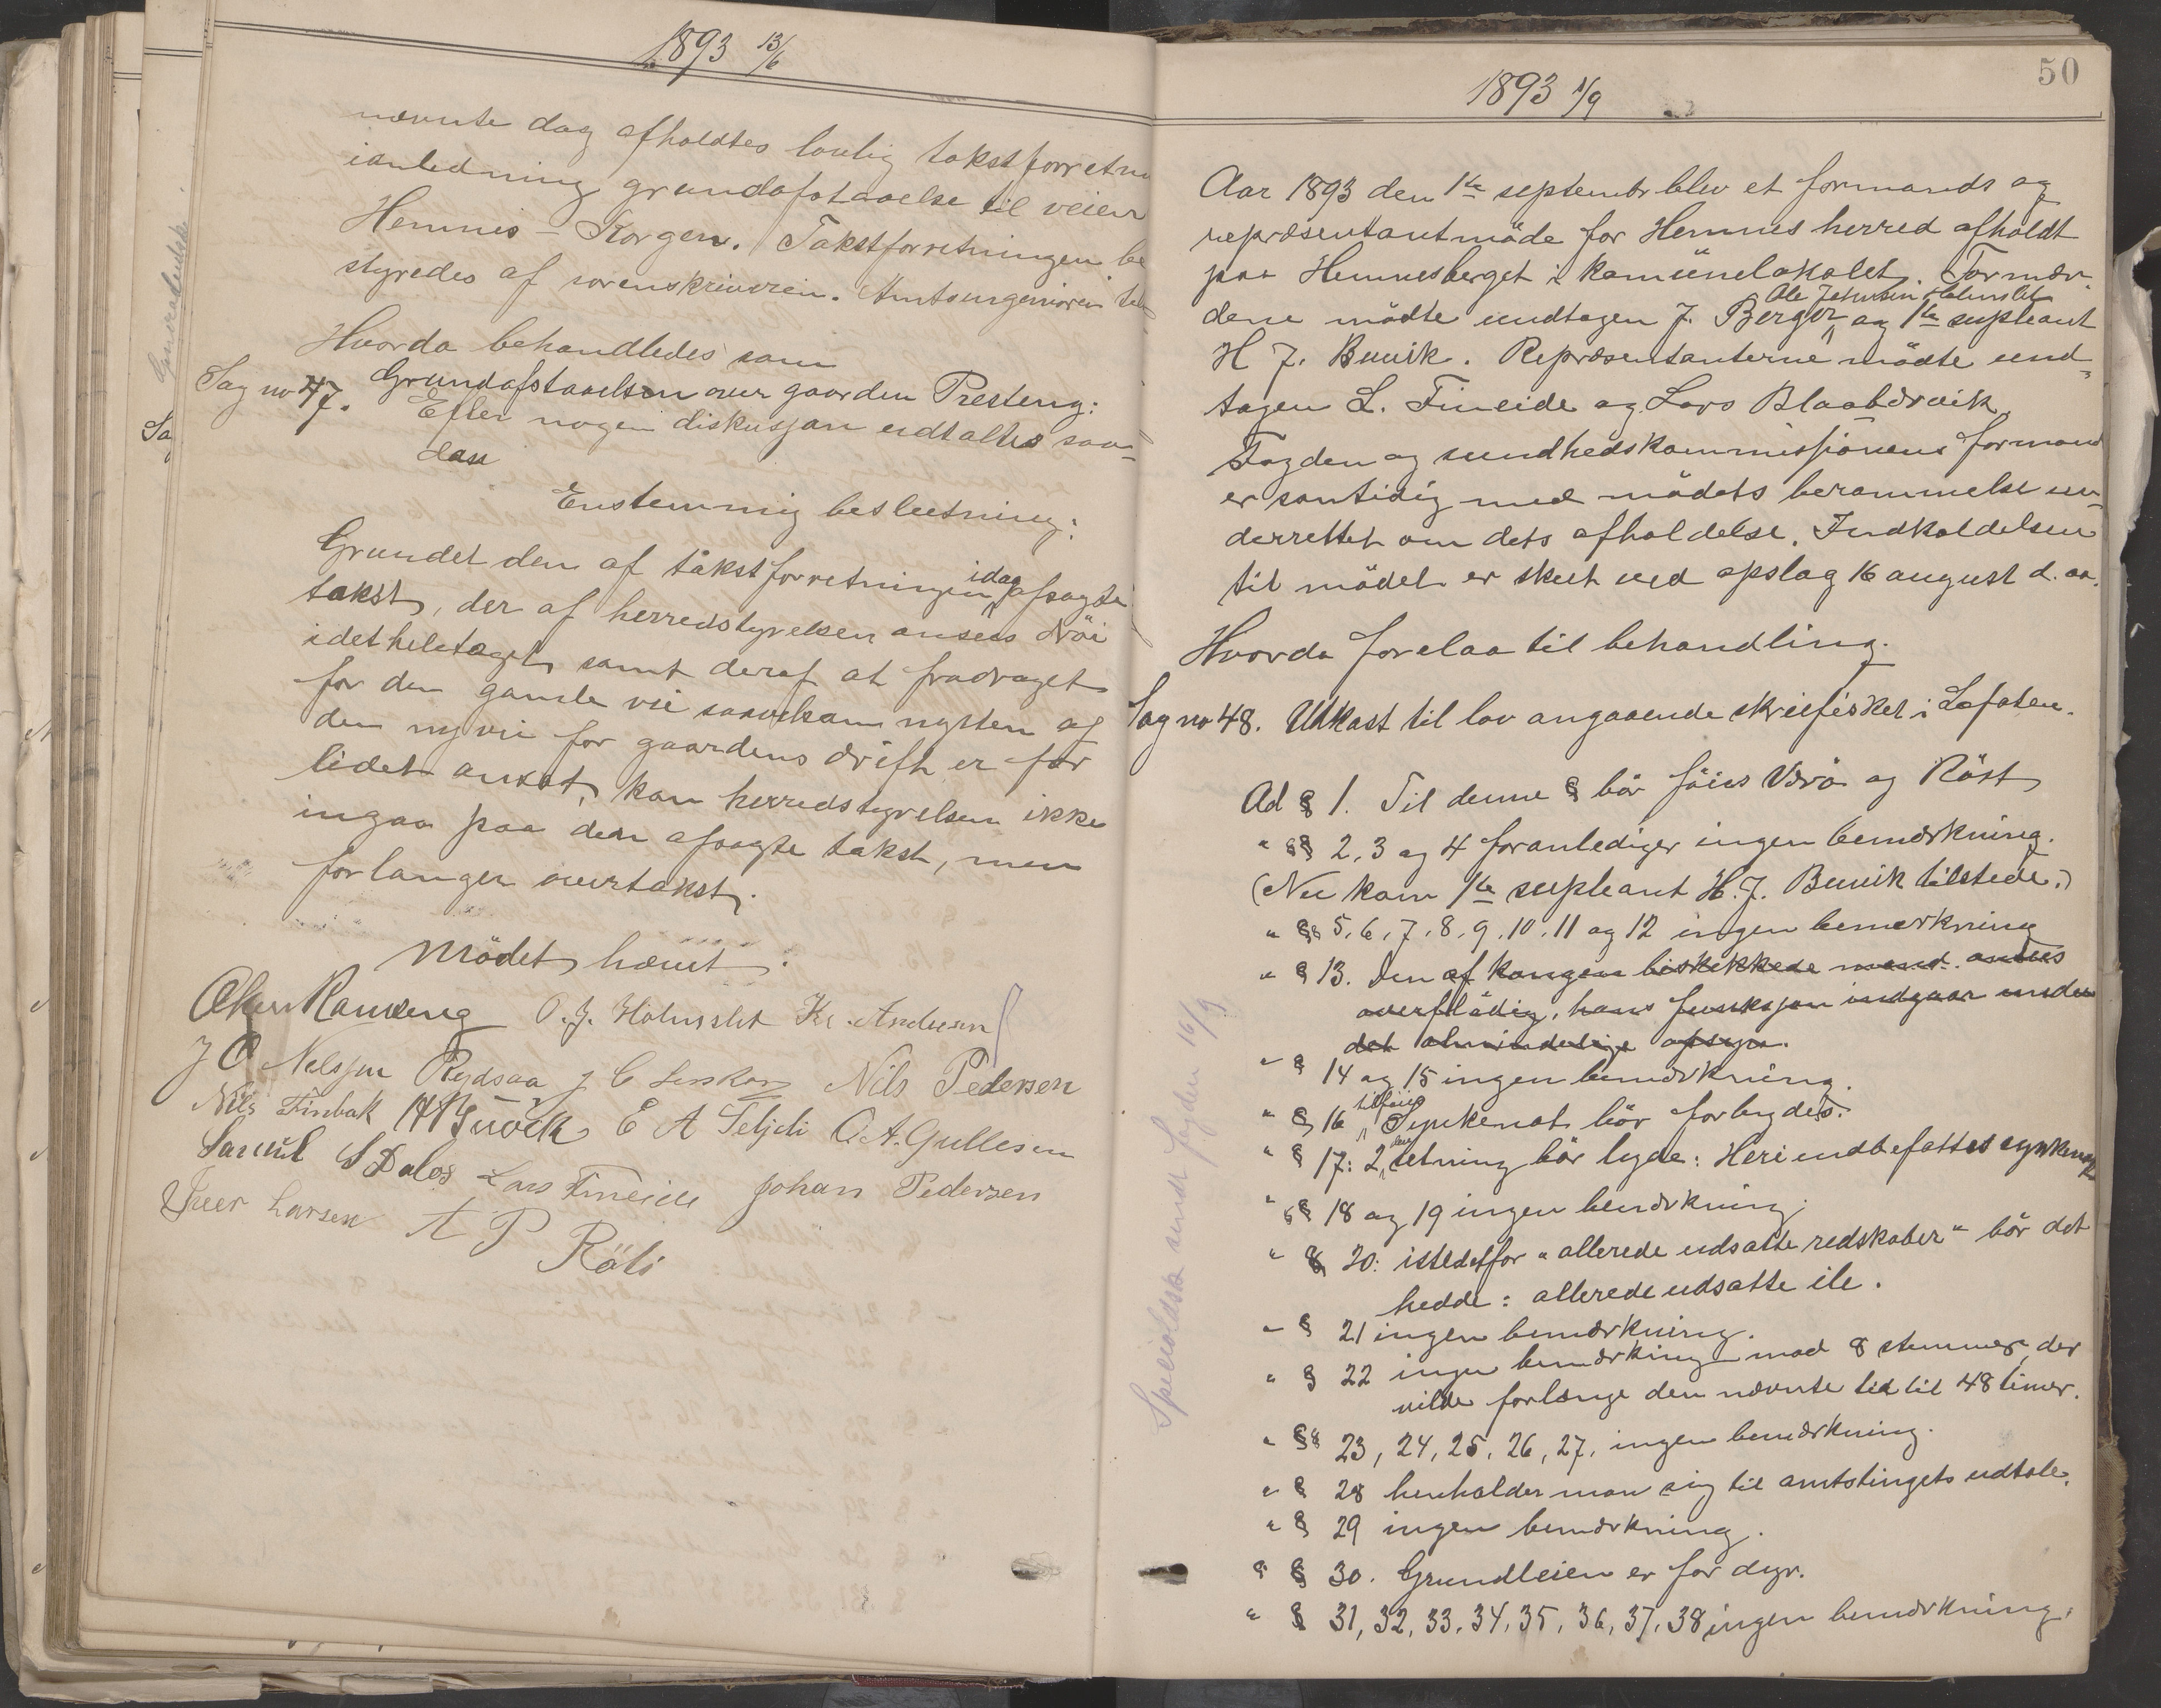 1893 13/6
nævnte dag afholdtes lovlig takstforretn
ianledning grundafstaaelse til veien
Hemnes – Korgen. Takstforretningen be
styredes af sorenskriveren. Amtsingeniøren
Hvorda behandledes som
Sag no 47. Grundafstaaelsen over gaarden Presteng:
Efter nogen diskusjon udtaltes saa-
dan
Enstemmig beslutning:
Grundet den af takstforretningen idag afsagte
takst, der af herredstyrelsen ansees høi
idetheletaget, samt deraf at fradraget
for den gamle vei saavelsom nytten af
den ny vei for gaardens drift er for
lidet ansat, kan herredstyrelsen ikke
ingaa paa den afsagte takst, men
forlanger overtakst.
Mödet hævet.
O. J. Holmslet Kr. Andersen
J C Nelsjøn Rydsaa Nils Pedersen
Nils Finbak E A O. A. Gullesen
Samuel S Dalos Lars Fineide Johan Pedersen
Iver Larsen A P
Röli
50
1893 1/9
Aar 1893 den 1ste septembr blev et formands og
repræsentantmöde for Hemnes herred afholdt
paa Hemnesberget i komünelokalet. Formæn-
dene mödte undtagen J. Berger, Ole Johnsen Holmslet og 1ste supleant
H J. Bruvik. Repræsentanterne mödte und-
tagen L. Fineide og Lars Blaabærvik
Fogden og sundhedskommissjonens formand
er samtidig med mödets berammelse un-
derrettet om dets afholdelse. Indkaldelsen
til mödet er skeet ved opslag 16 august d. aa.
Hvorda forelaa til behandling.
Sag no 48. Utkast til lov angaaende skreifisket i Lofoten.
Ad § 1. Til denne § bör föies Værö og Röst
" §§ 2, 3 og 4 foranlediger ingen bemærkning.
(Nu kom 1ste supleant H. J. Bruvik tilstede.)
" §§ 5, 6, 7, 8, 9, 10, 11 og 12 ingen bemerkning
" § 13. Den af kongen beskikkede mand. ansees
overflödig, hans funksjon indgaar under
det almindelige opsyn.
" § 14 og 15 ingen bemærkning.
" § 16 tilföies Synkenot bör forbydes.
" § 17: 2den setning bör lyde: Heri indbefattes synkenot
" §§ 18 og 19 ingen bemærkning.
" § 20: istedetfor "allerede udsatte redskaber" bör det
hedde: allerede udsatte ile.
" § 21 ingen bemærkning.
" § 22 ingen bemærkning mod 8 stemmer, der
vilde forlænge den nævnte tid til 48 timer.
" §§ 23, 24, 25, 26, 27, ingen bemærkning.
" § 28 henholder man sig til amtstingets udtale.
" § 29 ingen bemærkning.
" § 30. Grundleien er for dyr.
" § 31, 32, 33, 34, 35, 36, 37, 38 ingen bemærkning.
sendt fogden 16/9